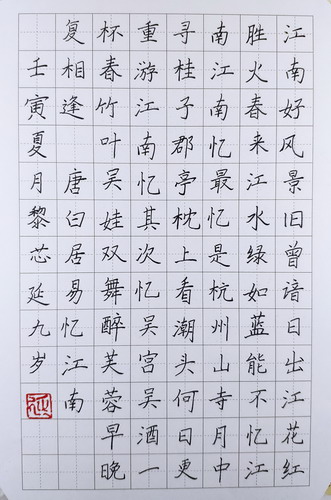 江南好风景旧曾谙日出江花红
胜火春来江水绿如蓝能不忆江
南江南忆最忆是杭州山寺月中
寻桂子郡亭枕上看潮头何日更
重游江南忆其次忆吴宫吴酒一
杯春竹叶吴娃双舞醉芙蓉早晚
复相逢 唐白居易忆江南
壬寅夏月黎芯延九岁